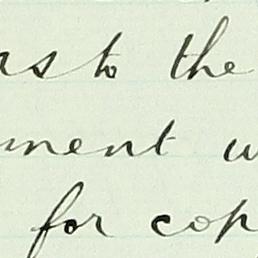 to the
ment
for cop